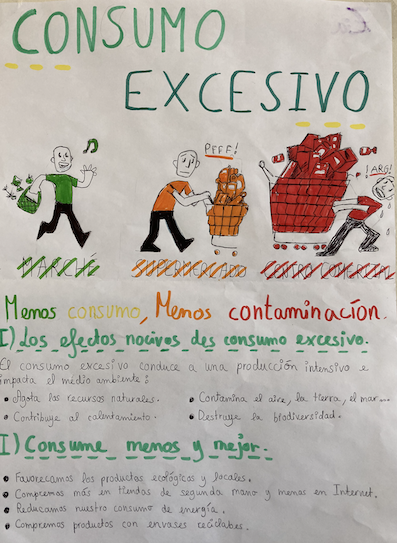 CONSUMO
EXCESIVO
PFFF!
¡ARG!
MARCHÉ SUPERMERCADO CENTRO COMERCIAL
Menos consumo, Menos contaminación.
I) Los efectos nocivos des consumo excesivo.
El consumo excesivo conduce a una producción intensivo e
impacta el medio ambiente :
• Agota los recursos naturales. • Contamina el aire, la tierra, el mar...
• Contribuye al calentamiento. • Destruye la biodiversidad.
I) Consume menos y mejor.
• Favorecamos los productos ecológicos y locales.
• Compremos más en tiendas de segunda mano y menos en Internet.
• Reducamos nuestro consumo de energía.
• Compremos productos con envases reciclabes.